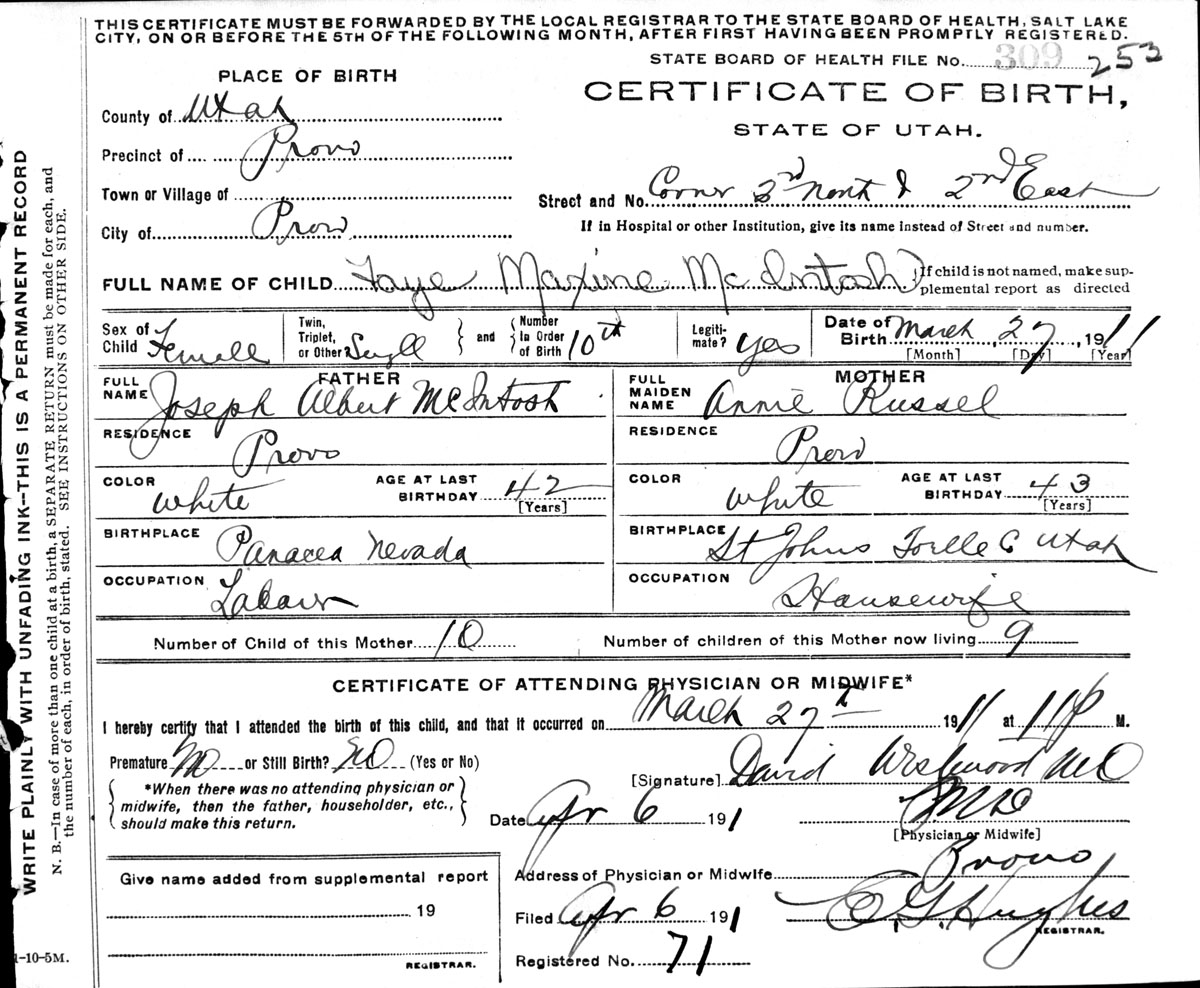 THIS CERTIFICATE MUST BE FORWARDED BY THE LOCAL REGISTRAR TO THE STATE BOARD OF HEALTH, SALT LAKE
CITY, ON OR BEFORE THE 5TH OF THE FOLLOWING MONTH, AFTER FIRST HAVING BEEN PROMPTLY REGISTERED.
STATE BOARD OF HEALTH FILE No. 309 253
PLACE OF BIRTH
CERTIFICATE OF BIRTH,
STATE OF UTAH.
County of Utah
Precinct of Provo
Town or Village of
City of Provo
Street and No. Corner 3rd North & 2nd East
If in Hospital or other Institution, give its name instead of Street and number.
FULL NAME OF CHILD Faye Maxine McIntosh
If child is not named, make sup-
plemental report as directed
Sex of Child Female
Twin, Triplet, or Other Single and Number In Order of Birth 10th
Legiti-mate? yes
Date of Birth March 27, 1911
[Month] [Day] [Year]
FATHER
FULL NAME Joseph Albert McIntosh
RESIDENCE Provo
COLOR White AGE AT LAST BIRTHDAY 42
[Years]
BIRTHPLACE Panacea Nevada
OCCUPATION Labour
MOTHER
FULL MAIDEN NAME Annie Russel
RESIDENCE Provo
COLOR White AGE AT LAST BIRTHDAY 43
[Years]
BIRTHPLACE St Johns Toelle C Utah
OCCUPATION Housewife
Number of Child of this Mother 10 Number of children of this Mother now living 9
CERTIFICATE OF ATTENDING PHYSICIAN OR MIDWIFE*
I hereby certify that I attended the birth of this child, and that it occurred on March 27th 1911 at 11 P M.
Premature No or Still Birth? No (Yes or No)
*When there was no attending physician or
midwife, then the father, householder, etc.,
should make this return.
[Signature] David Westwood MD
Date Apr 6 1911 MD
[Physician or Midwife]
Address of Physician or Midwife Provo
Give name added from supplemental report
19
REGISTRAR.
Filed Apr 6 1911 E. G. Hughes
REGISTRAR.
Registered No. 71
WRITE PLAINLY WITH UNFADING INK--THIS IS A PERMANENT RECORD
N. B.—In case of more than one child at a birth, a SEPARATE RETURN must be made for each, and
the number of each, in order of birth, stated. SEE INSTRUCTIONS ON OTHER SIDE.
1-10-5M.